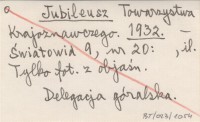 Jubileusz Towarzystwa
Krajoznawczego. 1932. –
Światowid 9, nr 20: –, il.
Tylko fot. z objaśn.
Delegacja góralska.